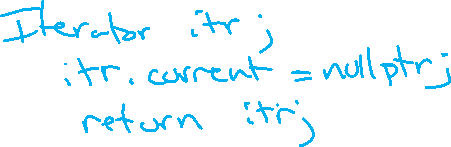 Iterator itr;
itr.current = nullptr;
return itr;